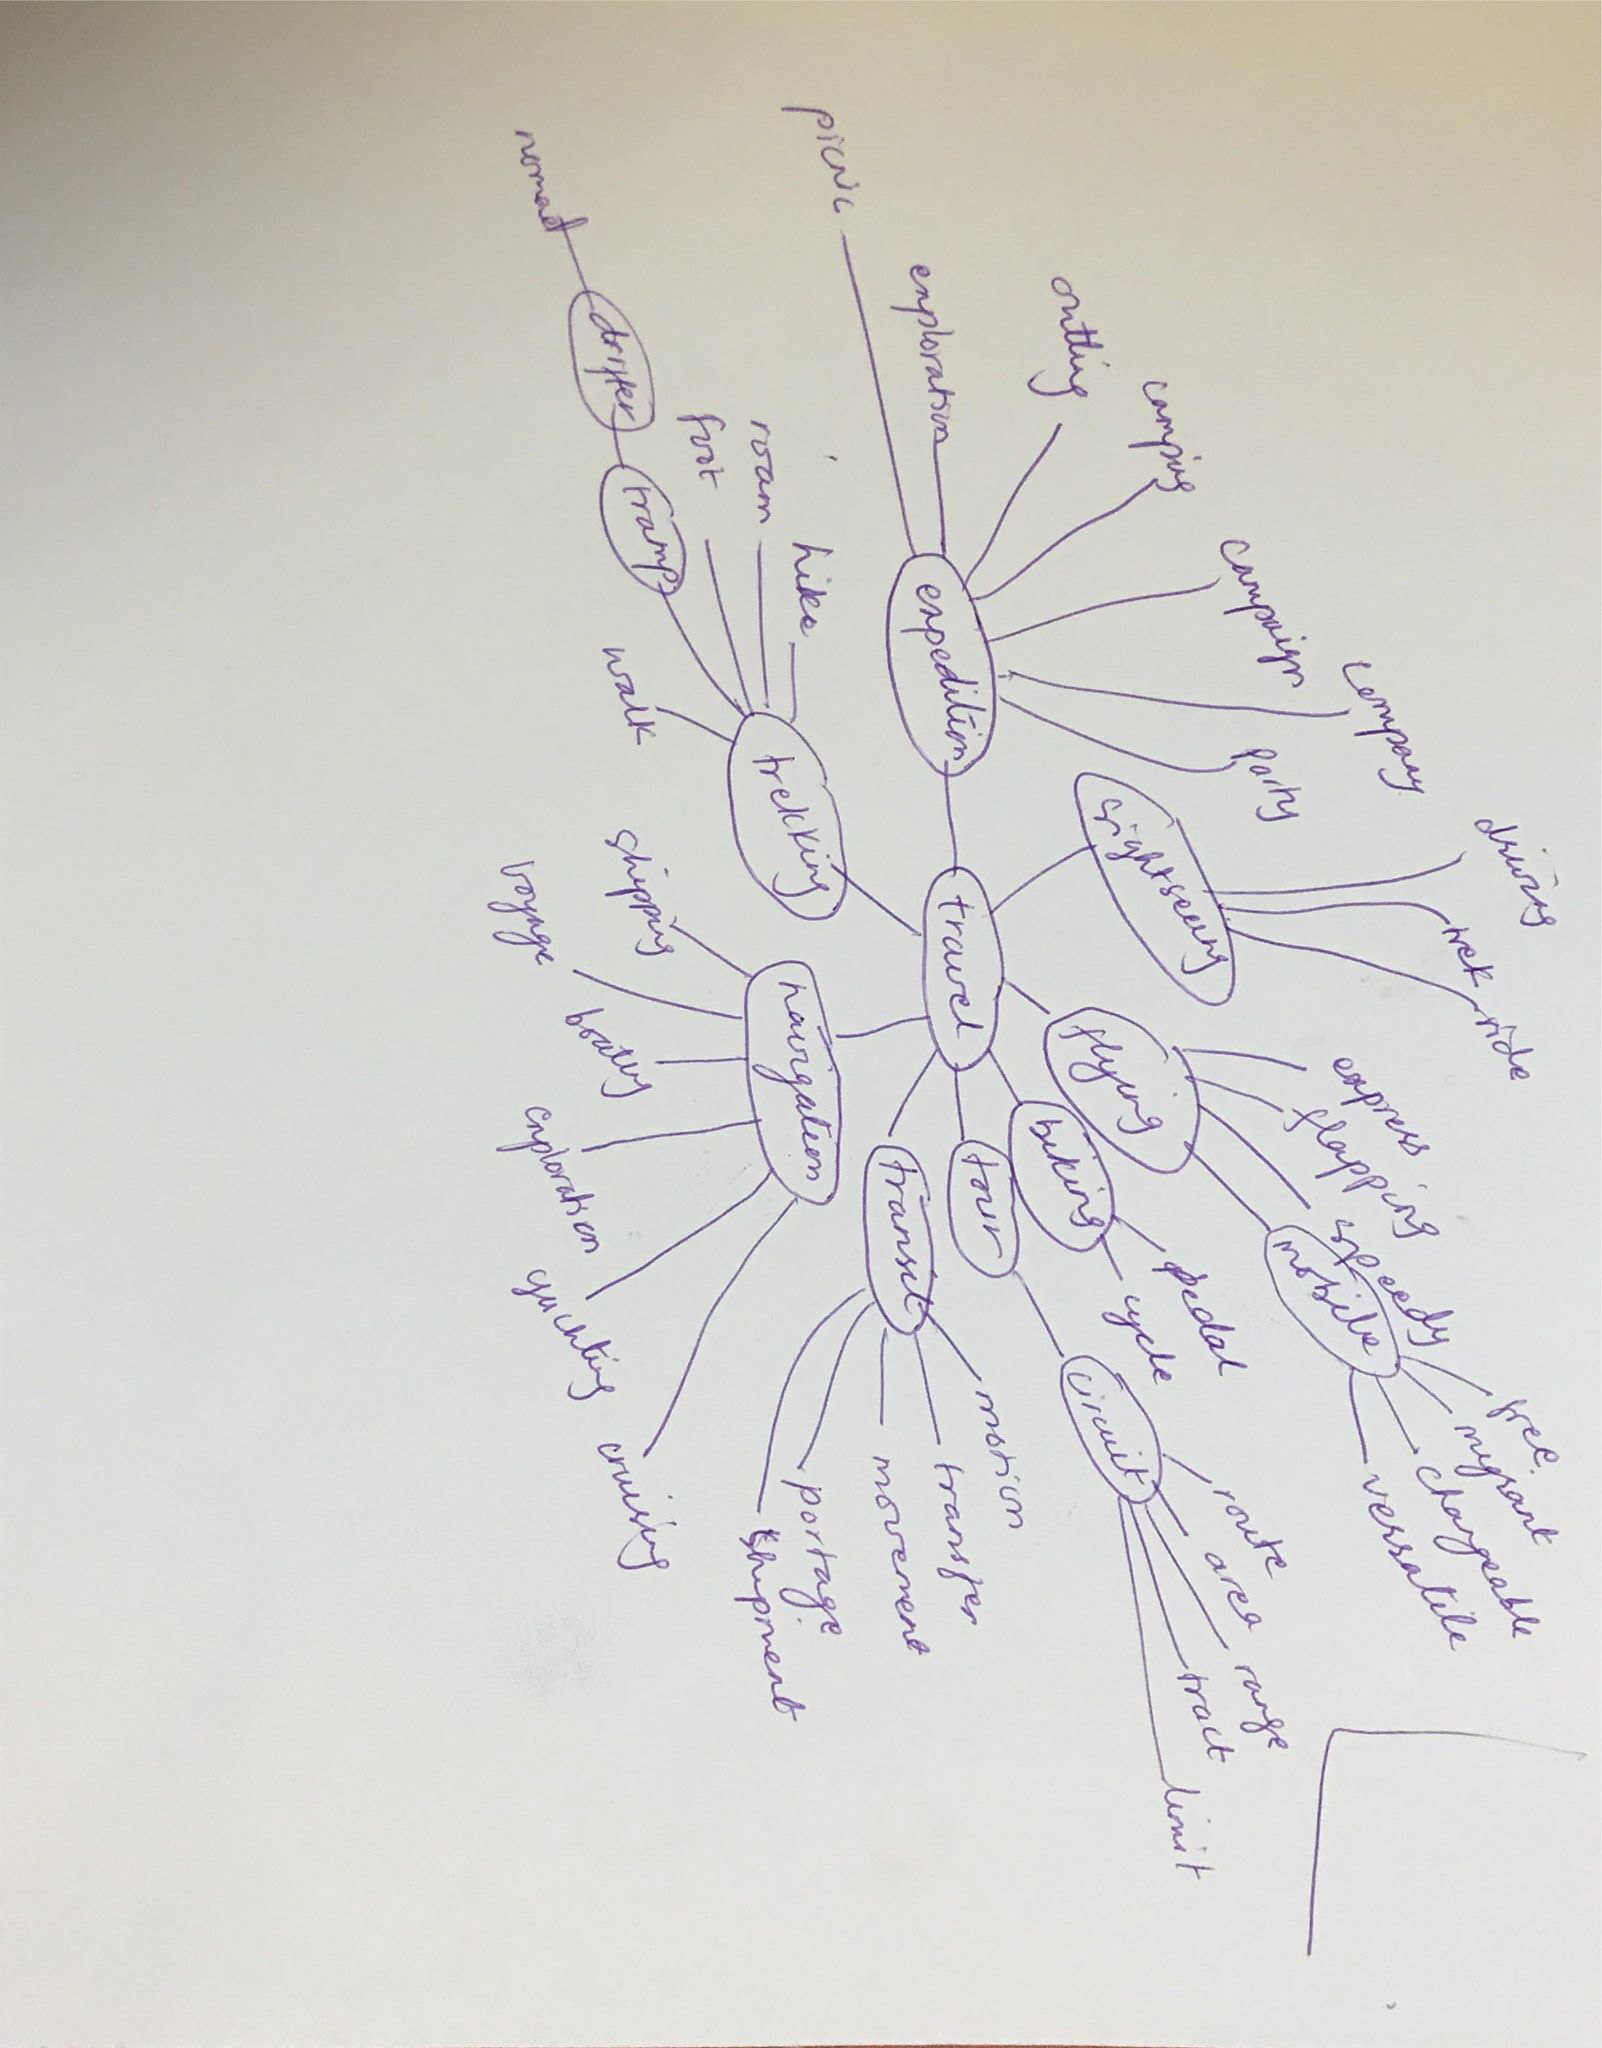 driving
trek
ride
free
migrant
changeable
versatile
company
campaign
party
express
flapping
speedy
mobile
camping
sightseeing
pedal
cycle
route
area
range
tract
limit
outting
flying
biking
circuit
exploration
expedition
travel
tour
motion
transfer
picnic
transit
movement
portage
shipment
hike
roam
foot
trekking
navigation
tramp
drifter
nomad
walk
shipping
voyage
boating
exploration
yachting
cruising